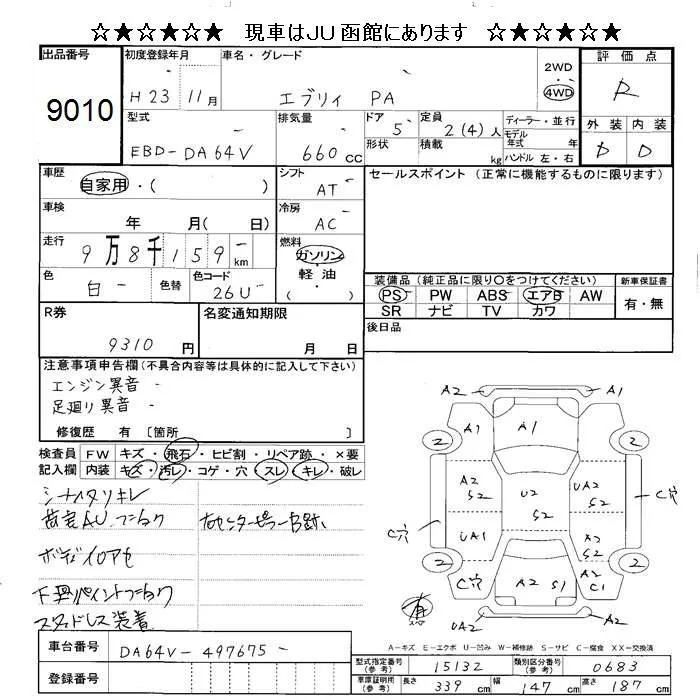 ☆★☆★☆★ 現車はJU函館にあります ☆★☆★☆★
出品番号 9010
初度登録年月 H23 11月
車名・グレード エブリィ PA
2WD 4WD
評価点 R
外装 D 内装 D
型式 EBD-DA64V
排気量 660cc
ドア 5
形状
定員 2(4)人
積載 kg
ディーラー・並行
モデル年式 年
ハンドル 左・右
車歴 自家用・( )
シフト AT
セールスポイント(正常に機能するものに限ります)
車検 年 月( 日)
冷房 AC
走行 9万8千159km
燃料 ガソリン 軽油 ( )
色 白 色替
色コード 26U
装備品(純正品に限り○をつけてください)
PS PW ABS エアB AW
SR ナビ TV カワ
新車保証書 有・無
R券 9310円
名変通知期限 月 日
後日品
注意事項申告欄(不具合内容等は具体的に記入して下さい)
エンジン異音
足廻り異音
修復歴 有 〔箇所 〕
検査員記入欄
FW キズ・飛石・ヒビ割・リペア跡・×要
内装 キズ・汚レ・コゲ・穴・スレ・キレ・破レ
シナイタリキレ
ボディイロアセ
スタッドレス装着
A2 A1
A1 A1
2 2
A2 S2 U2 S2 UA2 S2
C穴 C穴
UA1 A2 S2
2 2
C穴 A2 S1 A2 C1
有 スペア
UA2 A2
A-キズ E-エクボ U-凹み W-補修跡 S-サビ C-腐食 XX-交換済
車台番号 DA64V-497675
登録番号
型式指定番号(参考) 15132
類別区分番号(参考) 0683
車庫証明用(参考) 長さ 339cm 幅 147cm 高さ 187cm